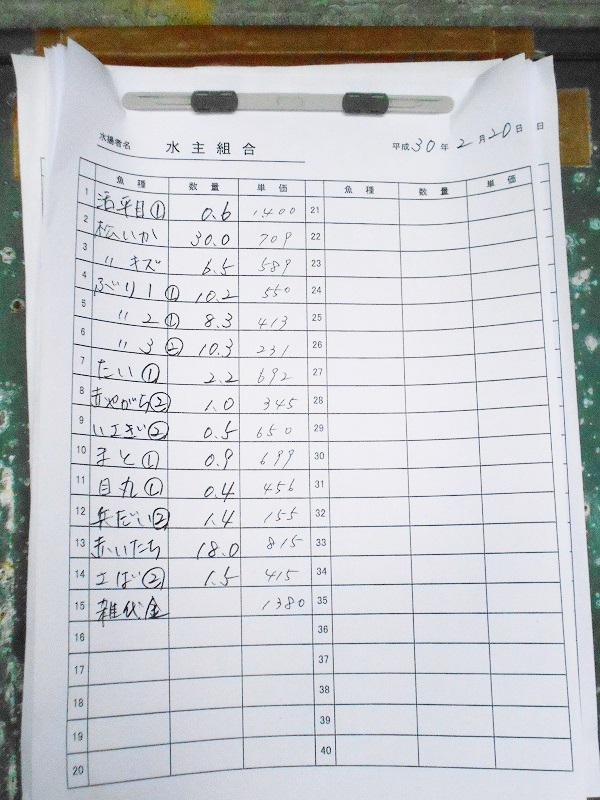 水揚者名 水主組合 平成30年2月20日 日
魚種 数量 単価 魚種 数量 単価
1 活平目① 0.6 1400 21
2 松いか 30.0 709 22
3 〃 キズ 6.5 589 23
4 ぶり1① 10.2 550 24
5 〃 2① 8.3 413 25
6 〃 3② 10.3 231 26
7 たい① 2.2 692 27
8 赤やがら② 1.0 345 28
9 いさぎ② 0.5 650 29
10 まと① 0.9 699 30
11 目丸① 0.4 456 31
12 兵だい② 1.4 155 32
13 赤いたち 18.0 815 33
14 さば② 1.5 415 34
15 雑代金 1380 35
16 36
17 37
18 38
19 39
20 40